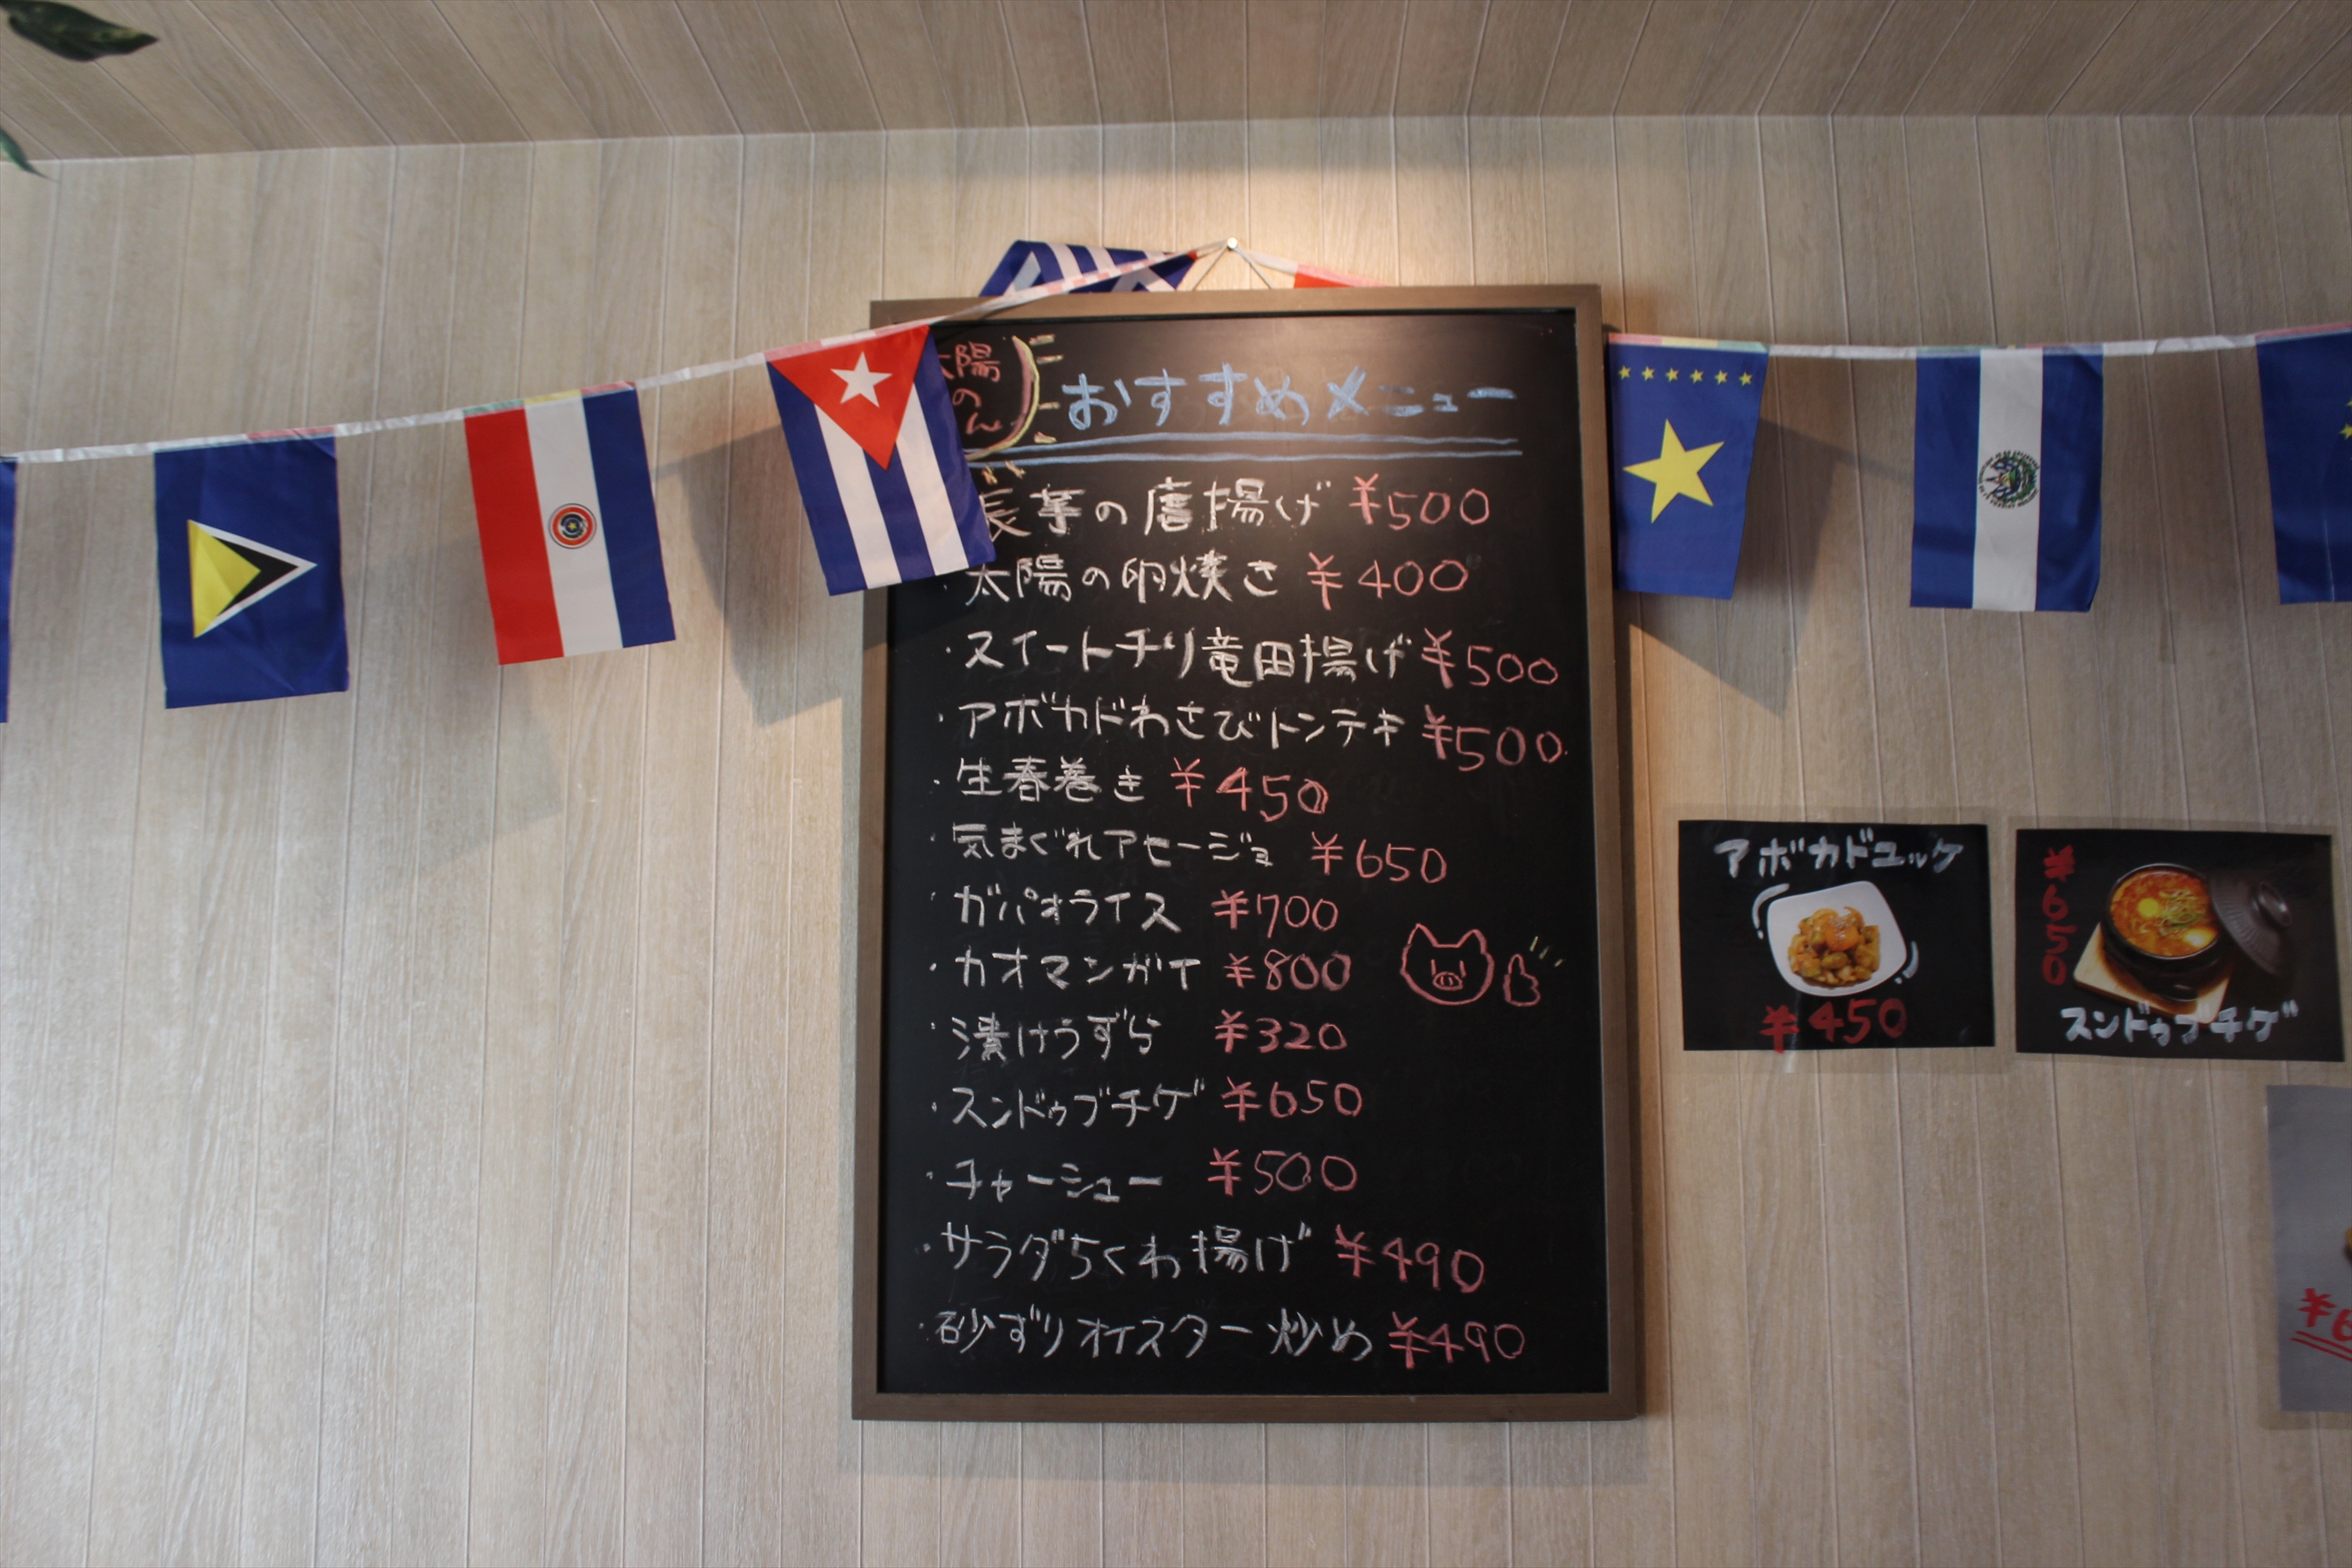 陽
の
ん
おすすめメニュー
長芋の唐揚げ ¥500
・太陽の卵焼き ¥400
・スイートチリ竜田揚げ ¥500
・アボカドわさびトンテキ ¥500
・生春巻き ¥450
・気まぐれアヒージョ ¥650
・ガパオライス ¥700
・カオマンガイ ¥800
・漬けうずら ¥320
・スンドゥブチゲ ¥650
・チャーシュー ¥500
・サラダちくわ揚げ ¥490
・砂ずりオイスター炒め ¥490
アボカドユッケ
¥450
¥650
スンドゥブチゲ